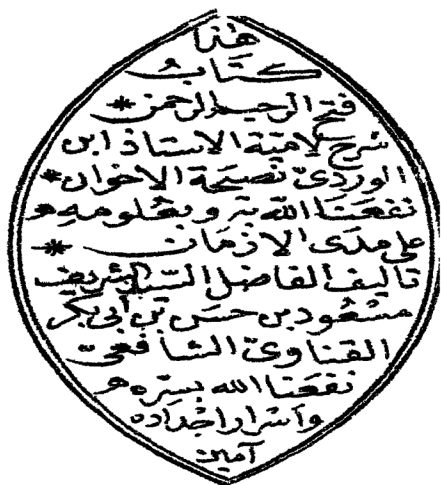 هٰذا
كتَابُ
فتح الرحيم الرحمن *
شرح لامية الاستاذ ابن
الوردىّ نصيحة الاخوان *
نفعنا الله به وبعلومه
على مدى الازمان *
تاليف الفاضل السّيد الشريف
مسعود بن حسن بن أبى بكر
القناوىّ الشافعىّ
نفعنا الله بسرّه
وأسرار اجداده
آمين